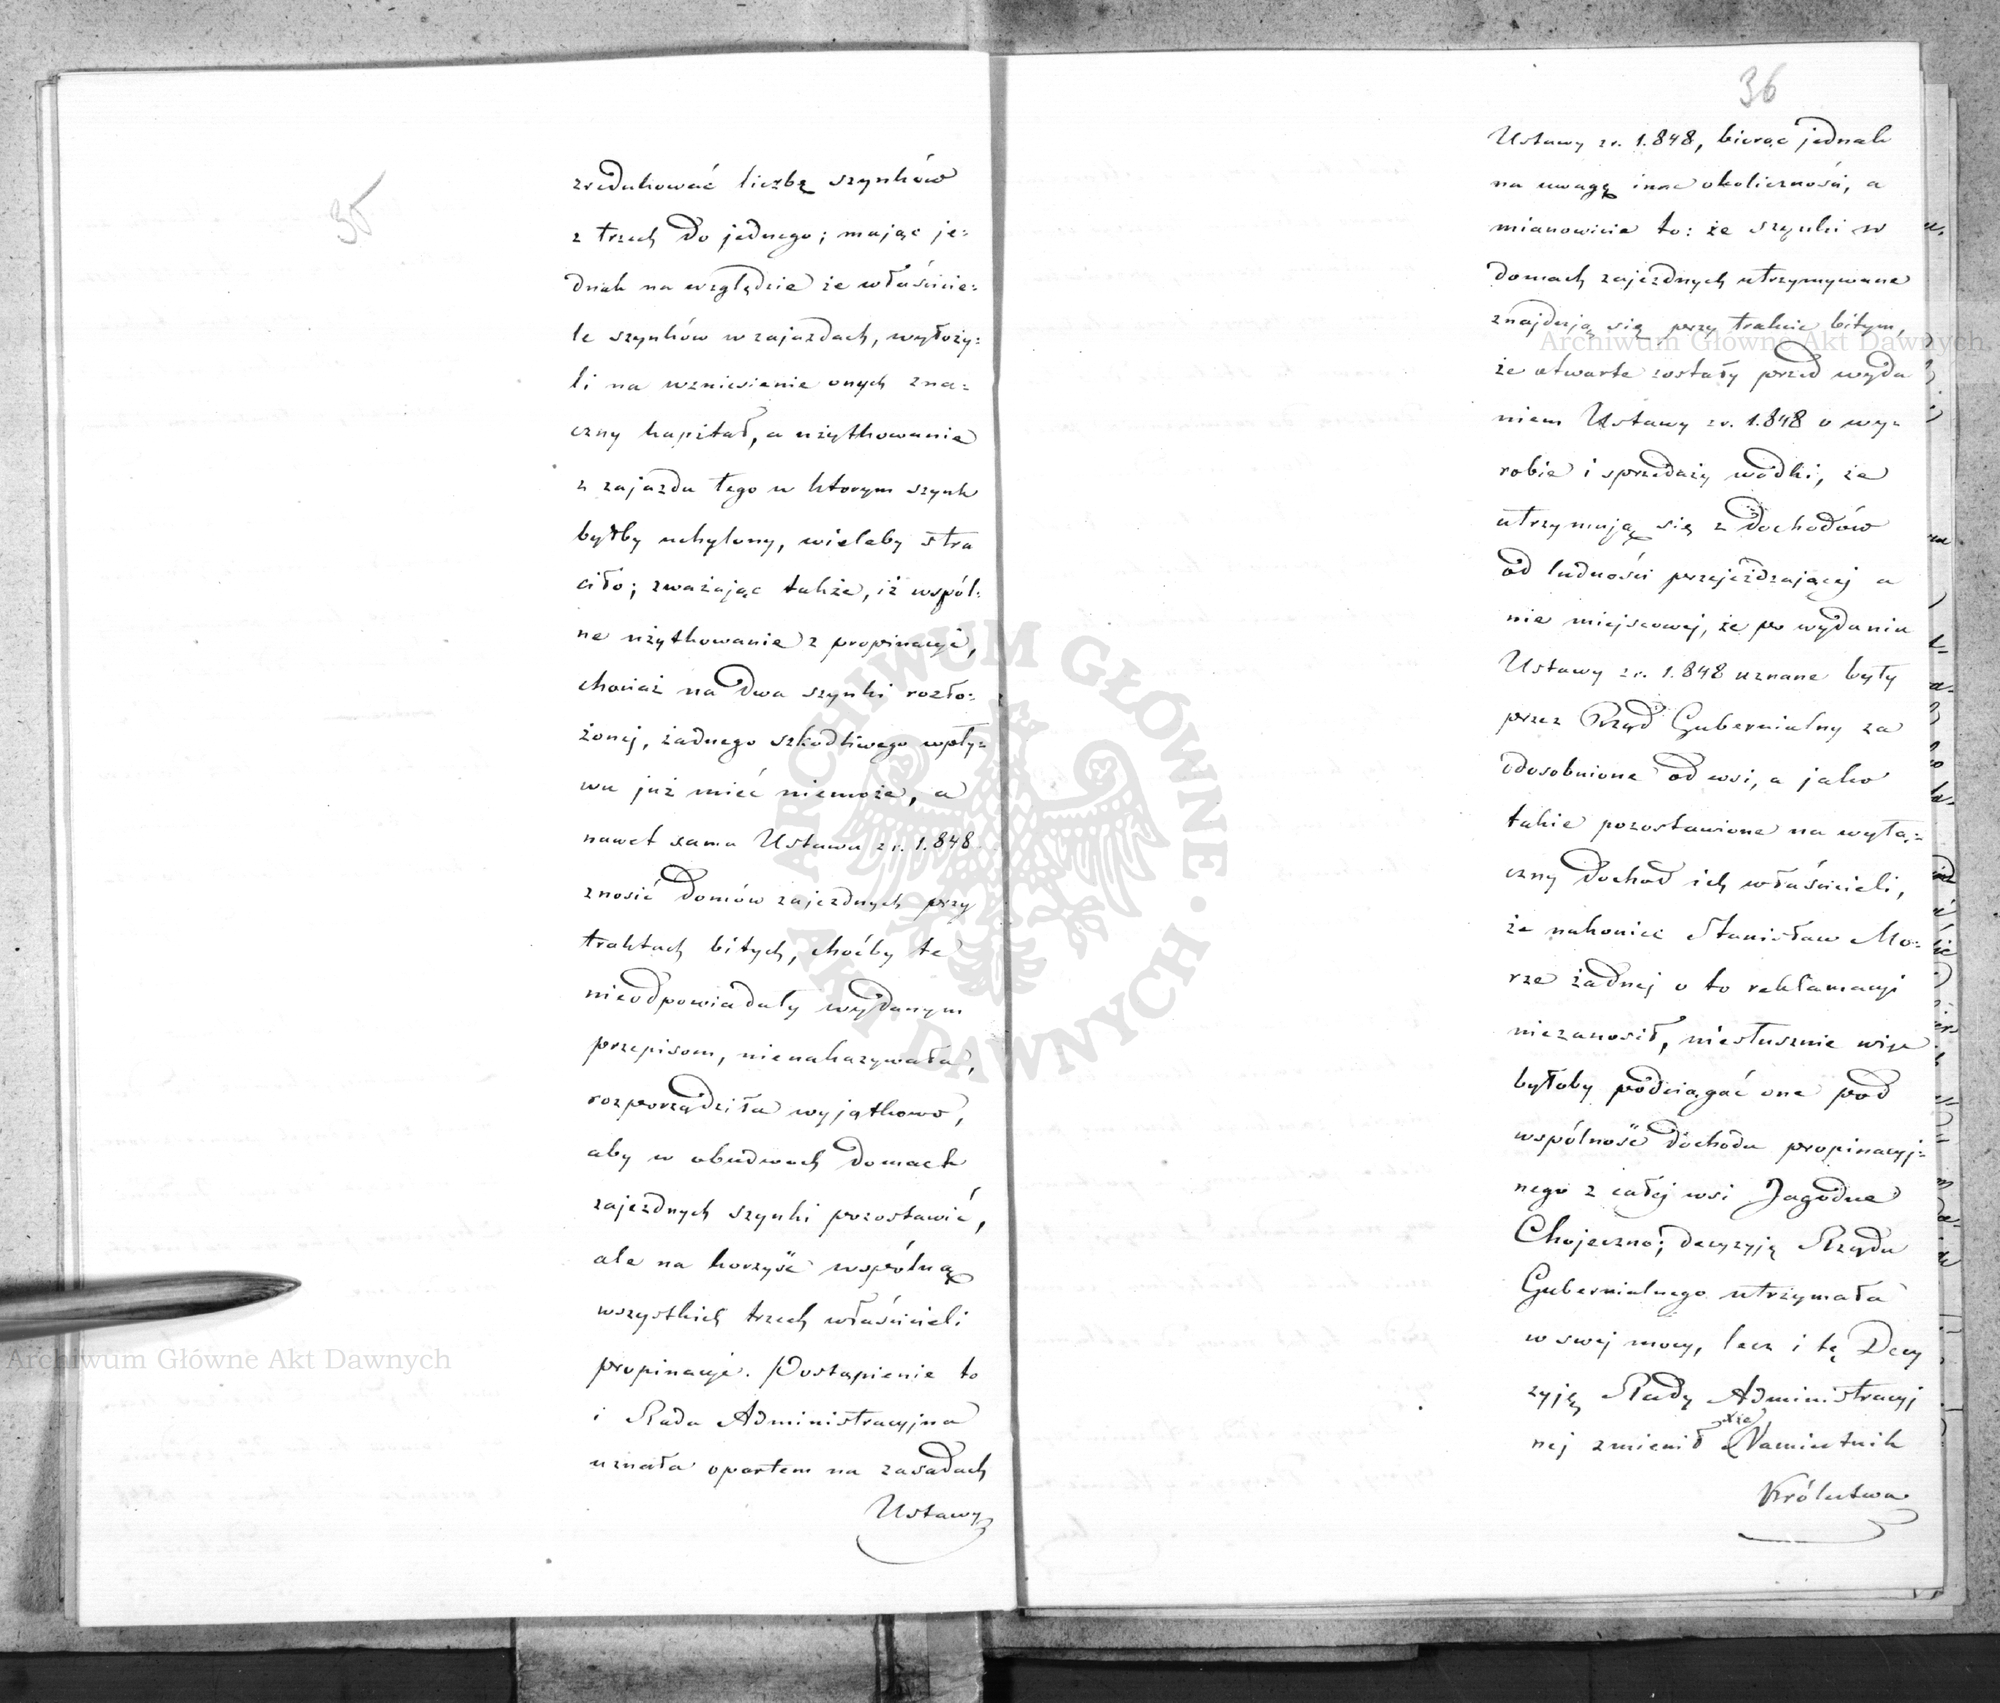 35
zredukować liczbę szynków
z trzech do jednego; mając je=
dnak na względzie że właścicie=
le szynków w zajazdach, wyłoży=
li na wzniesienie onych zna=
czny kapitał, a użytkowanie
z zajazdu tego w ktorym szynk
byłby uchylony, wieleby stra
ciło; zważając także, iż wspól=
ne użytkowanie z propinacyi,
chociaż na dwa szynki rozło=
żonej, żadnego szkodliwego wpły=
wu już mieć niemoże, a
nawet sama Ustawa z r. 1.848
znosić domów zajezdnych przy
traktach bitych, choćby te
nieodpowiadały wydanym
przepisom, nienakazywała,
rozporządziła wyjątkowo,
aby w obudwoch domach
zajezdnych szynki pozostawić,
ale na korzyść wspólną
wszystkich trzech właścicieli
propinacyi. Postąpienie to
i Rada Administracyjna
uznała opartem na zasadach
Ustawy
36
Ustawy z r. 1.848, biorąc jednak
na uwagę inne okoliczności, a
mianowicie to: że szynki w
domach zajezdnych utrzymywane
znajdują się przy trakcie bitym,
że otwarte zostały przed wyda
niem Ustawy z r. 1.848 o wy=
robie i sprzedaży wódki, że
utrzymują się z dochodów
od ludności przejeżdzającej a
nie miejscowej, że po wydaniu
Ustawy z r. 1.848 uznane były
przez Rząd Gubernialny za
odosobnione od wsi, a jako
takie pozostawione na wyłą=
czny dochod ich właścicieli,
że nakoniec Stanisław Mo=
rze żadnej o to reklamacyi
niezanosił, niesłusznie więc
byłoby podciągać one pod
wspólność dochodu propinacyj=
nego z całej wsi Jagodne
Chojeczno; decyzyję Rządu
Gubernialnego utrzymała
w swej mocy, lecz i tę Decy
zyję Rady Administracyj
nej zmienił Xże Namiestnik
Królestwa
Archiwum Główne Akt Dawnych
Archiwum Główne Akt Dawnych
ARCHIWUM GŁÓWNE · AKT DAWNYCH ·